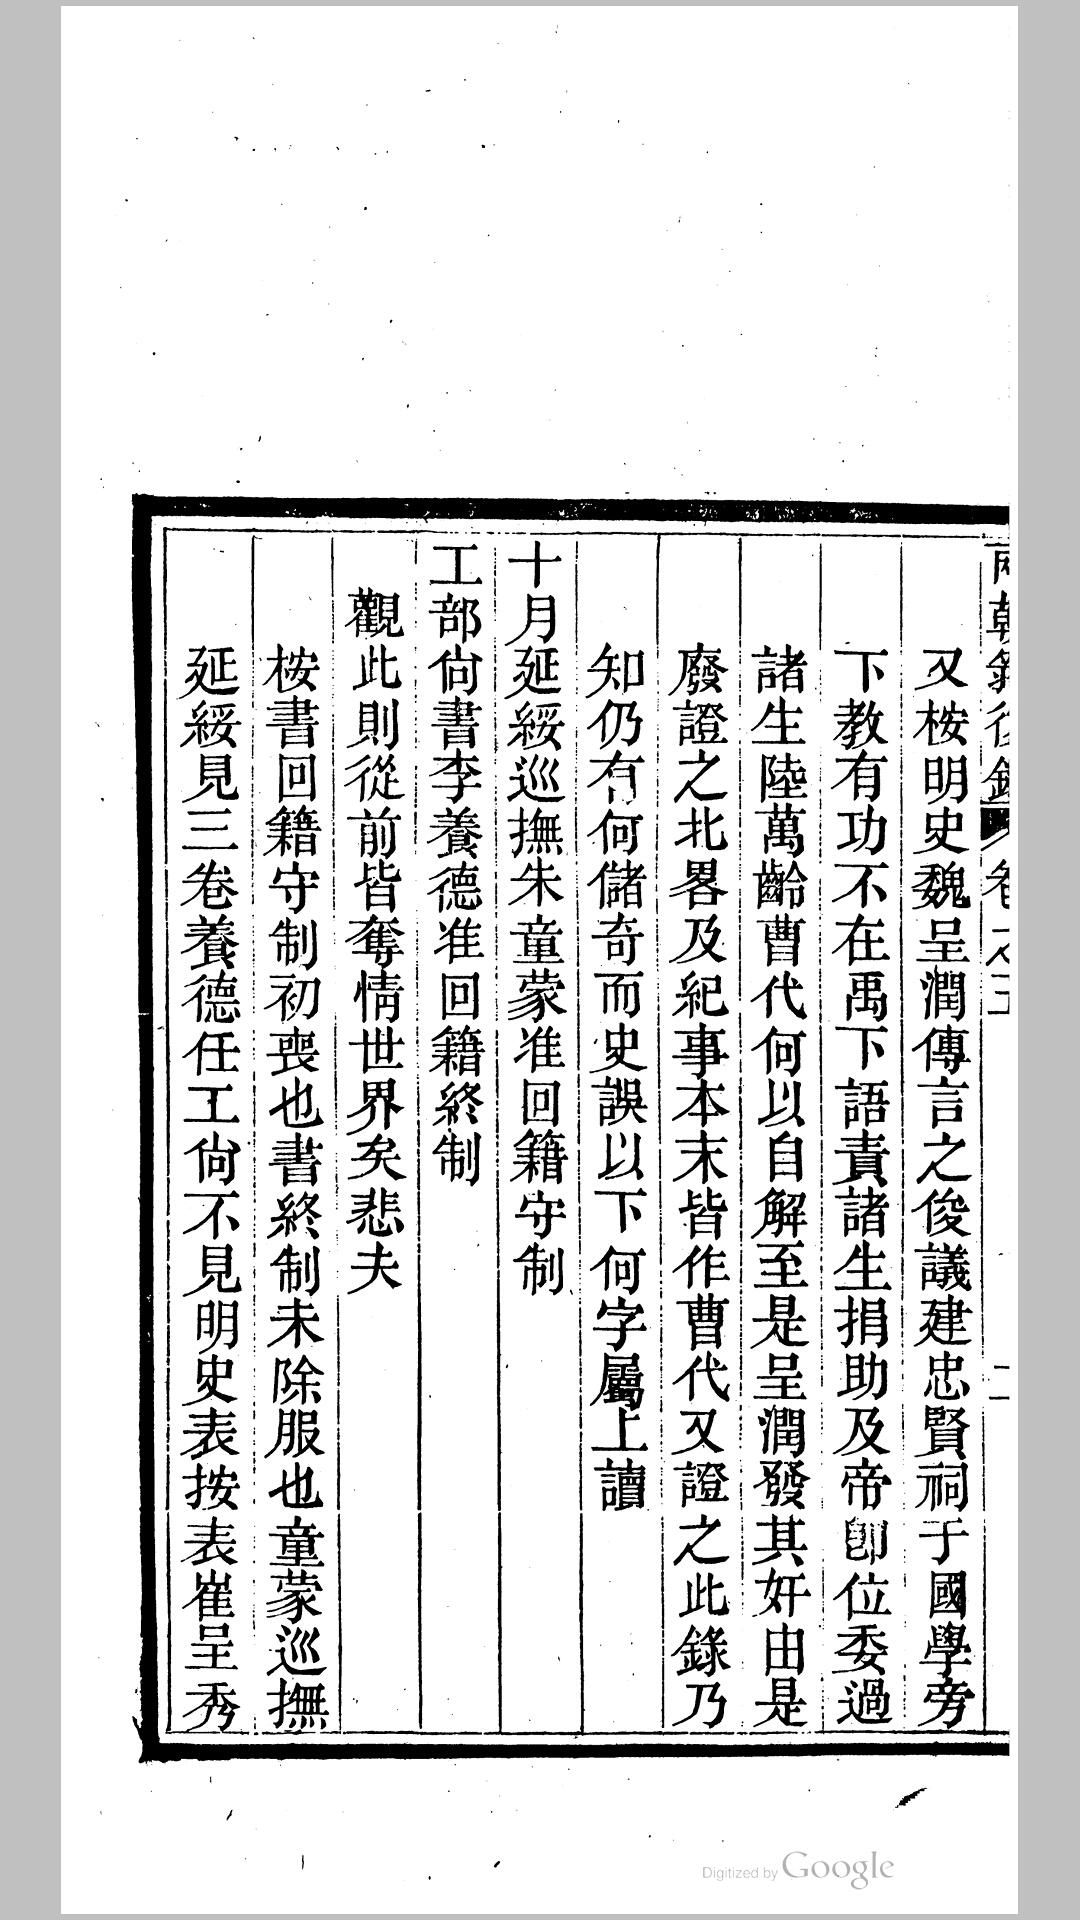 又桉明史魏呈潤傳言之俊議建忠賢祠于國學旁
下教有功不在禹下語責諸生捐助及帝卽位委過
諸生陸萬齡曹代何以自解至是呈潤發其奸由是
廢證之北畧及紀事本末皆作曹代又證之此錄乃
知仍有何儲奇而史誤以下何字屬上讀
十月延綏巡撫朱童蒙准回籍守制
工部尙書李養德准回籍終制
觀此則從前皆奪情世界矣悲夫
桉書回籍守制初喪也書終制未除服也童蒙巡撫
延綏見三卷養德任工尙不見明史表按表崔呈秀
Digitized by Google